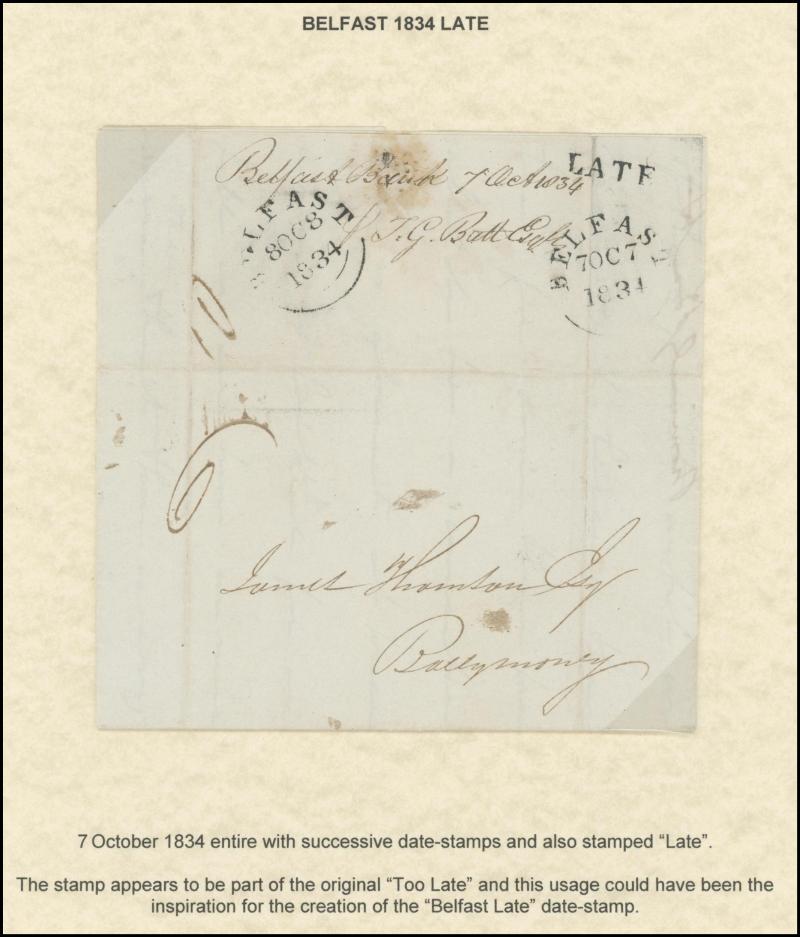 BELFAST 1834 LATE
Belfast Bank 7 Oct 1834
LATE
T. G. Batt Esqr
BELFAST
8OC8
1834
BELFAST
7OC7
1834
6
James Thomson Esq
Ballymoney
7 October 1834 entire with successive date-stamps and also stamped “Late”.
The stamp appears to be part of the original “Too Late” and this usage could have been the
inspiration for the creation of the “Belfast Late” date-stamp.